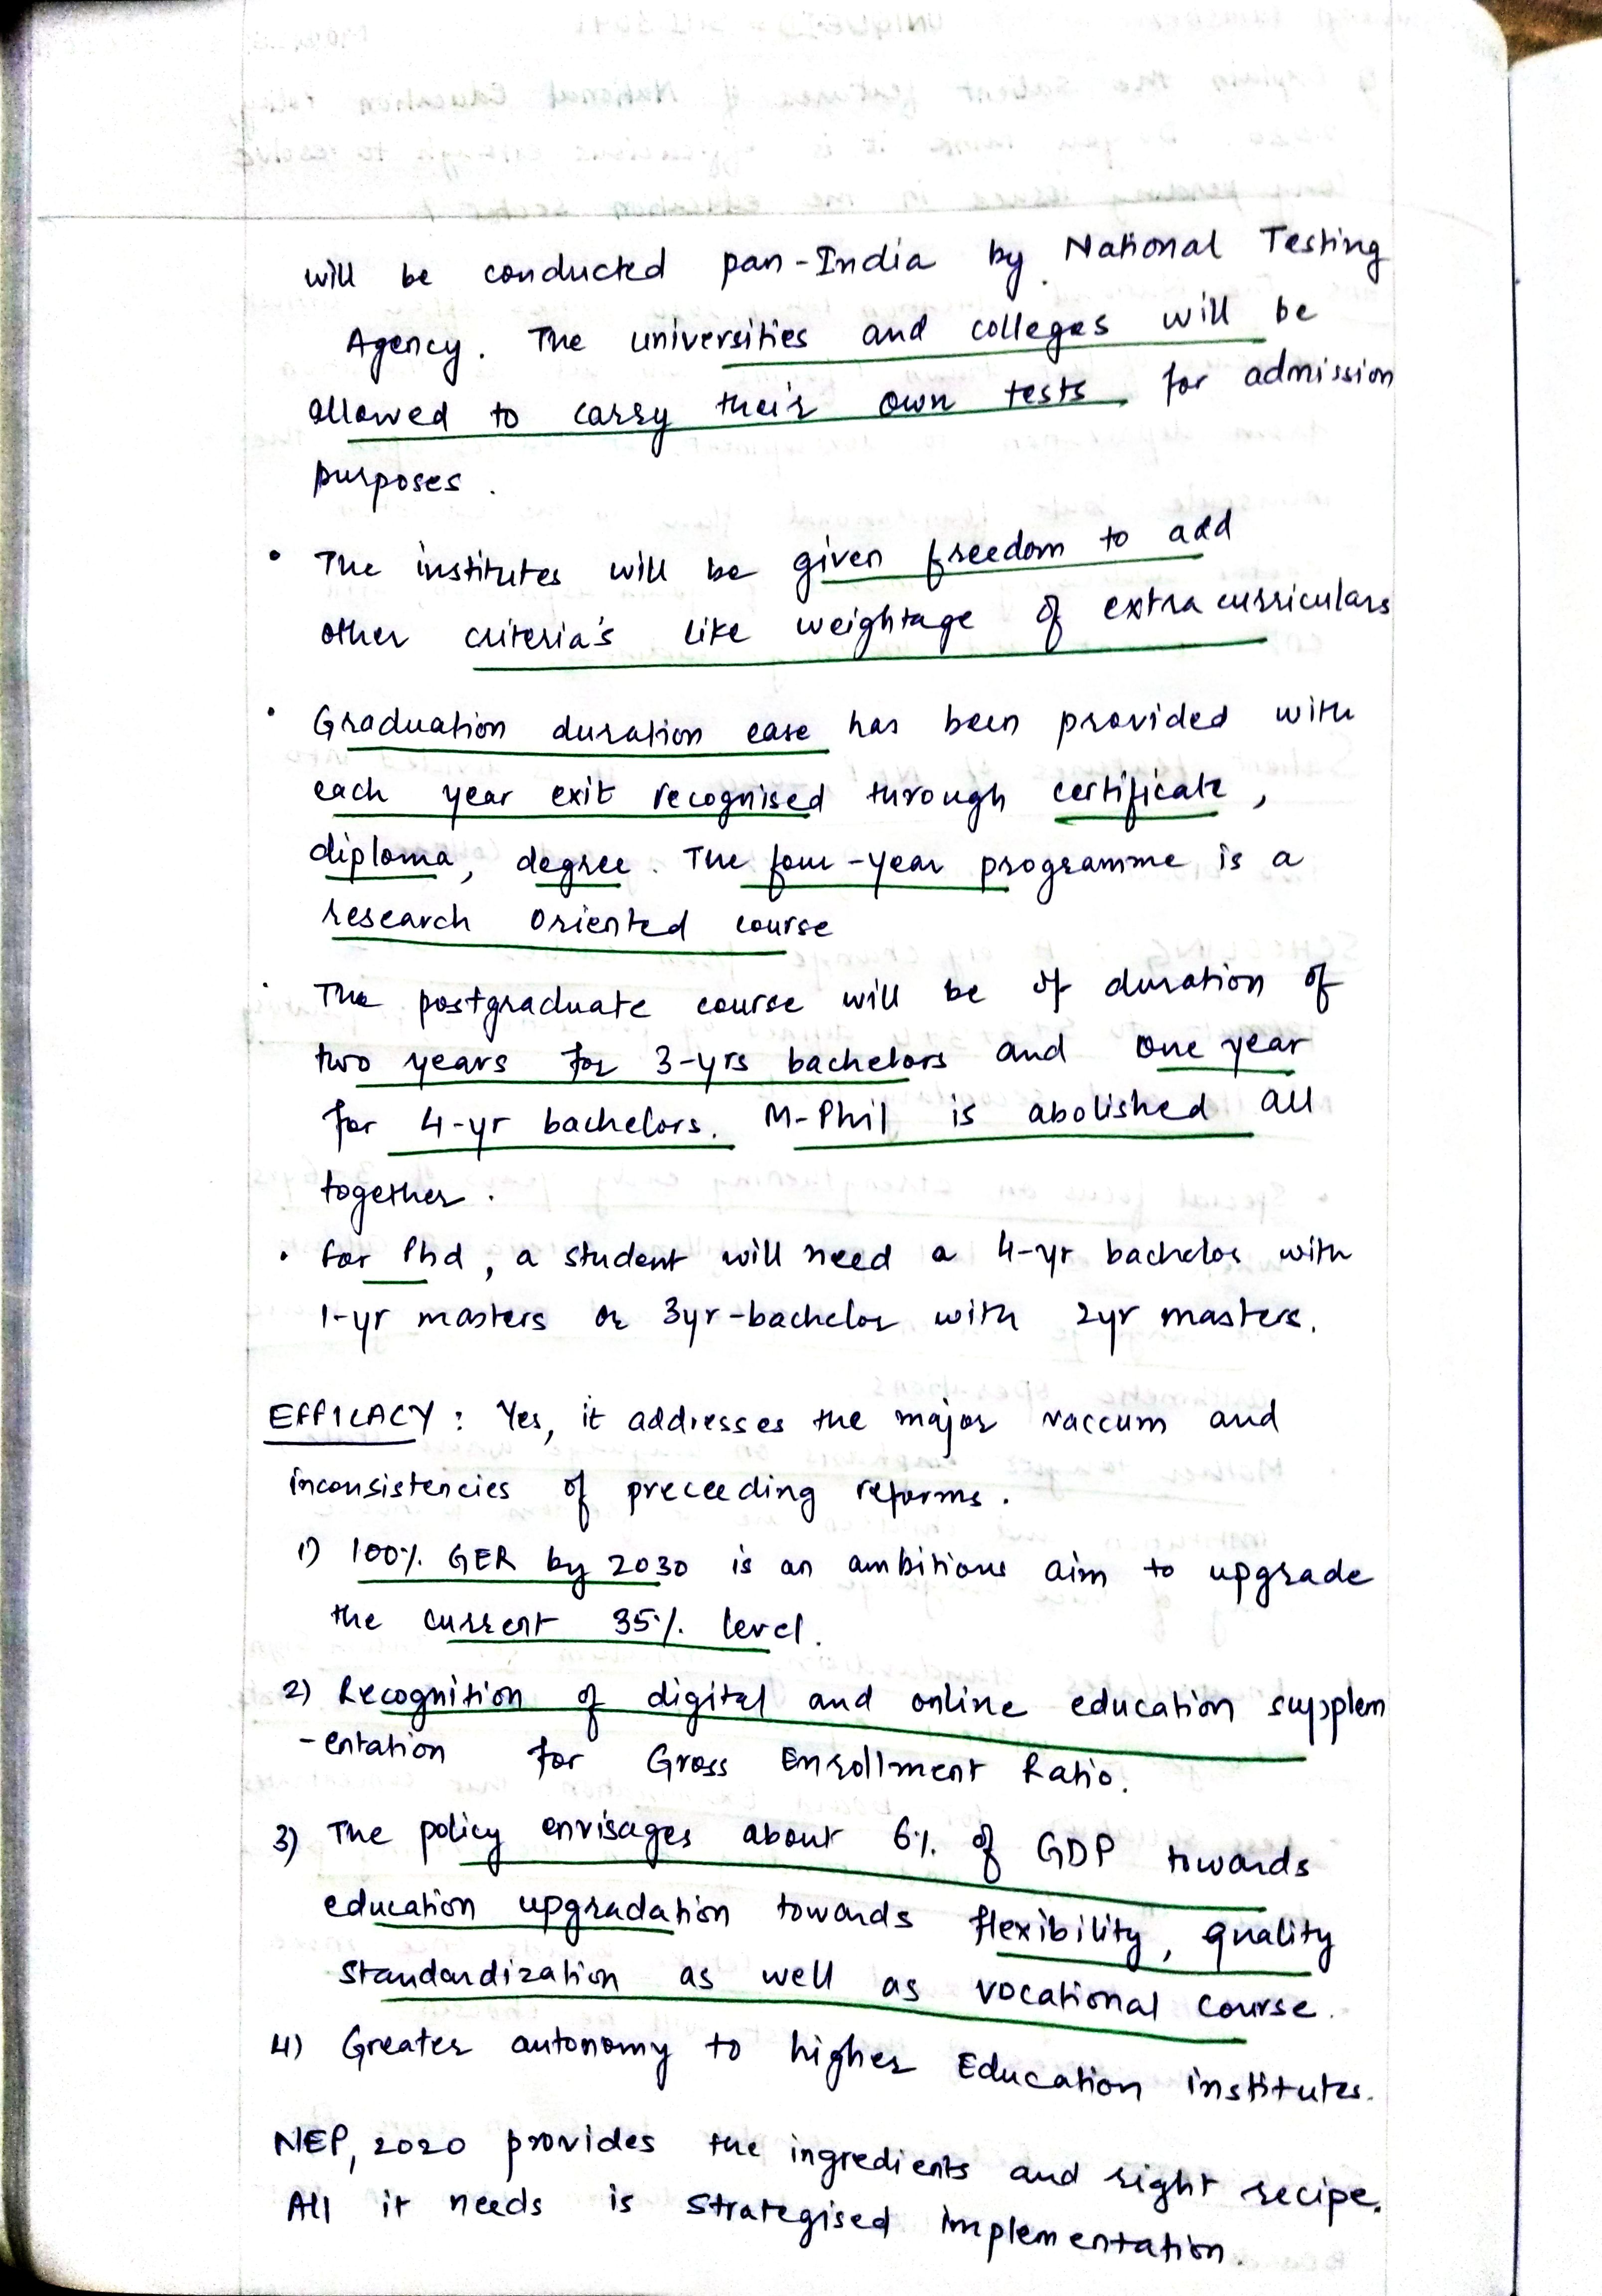 will be conducted pan-India by National Testing
Agency. The universities and colleges will be
allowed to carry their own tests for admission
purposes.
• The institutes will be given freedom to add
other criteria's like weightage of extra curriculars
• Graduation duration ease has been provided with
each year exit recognised through certificate,
diploma, degree. The four-year programme is a
research oriented course
• The postgraduate course will be of duration of
two years for 3-yrs bachelors and one year
for 4-yr bachelors. M-Phil is abolished all
together.
• for Phd, a student will need a 4-yr bachelor with
1-yr masters or 3yr-bachelor with 2yr masters.
EFFICACY: Yes, it addresses the major vaccum and
inconsistencies of preceeding reforms.
1) 100% GER by 2030 is an ambitious aim to upgrade
the current 35% level.
2) Recognition of digital and online education supplem
-entation for Gross Enrollment Ratio.
3) The policy envisages about 6% of GDP towards
education upgradation towards flexibility, quality
standardization as well as vocational course.
4) Greater autonomy to higher Education institutes.
NEP, 2020 provides the ingredients and right recipe.
All it needs is strategised implementation.